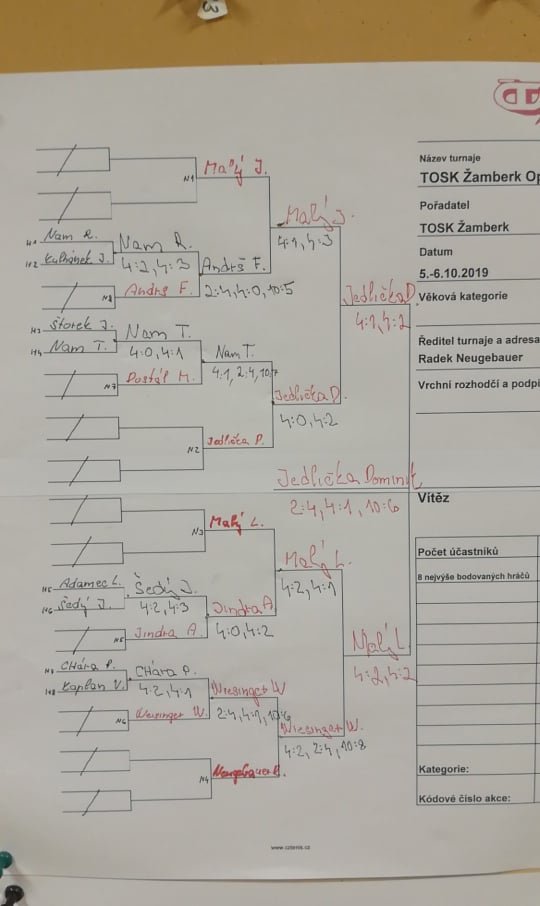 Malý J.
N1
Malý J.
4:1, 4:3
Nam R.
H1
Nam R.
4:2, 4:3
H2
Andrš F.
2:4, 4:0, 10:5
N8
Andrš F.
Jedlička D.
4:1, 4:2
H3
Štorek J.
Nam T.
4:0, 4:1
H4
Nam T.
Nam T.
4:1, 2:4, 10:7
N7
Dostál M.
Jedlička D.
4:0, 4:2
N2
Jedlička D.
Jedlička Dominik
2:4, 4:1, 10:6
N3
Malý L.
Malý L.
4:2, 4:1
H5
Adamec L.
Šedý J.
4:2, 4:3
H6
Šedý J.
Jindra A.
4:0, 4:2
N5
Jindra A.
Malý L.
4:2, 4:2
H7
CHára P.
CHára P.
4:2, 4:1
H8
Kaplan V.
Wiesinger W
2:4, 4:1, 10:6
N6
Weisinger W.
Wiesinger W.
4:2, 2:4, 10:8
N4
Název turnaje
TOSK Žamberk Op
Pořadatel
TOSK Žamberk
Datum
5.-6.10.2019
Věková kategorie
Ředitel turnaje a adresa
Radek Neugebauer
Vrchní rozhodčí a podpi
Vítěz
Počet účastníků
8 nejvýše bodovaných hráčů
Kategorie:
Kódové číslo akce:
www.cztenis.cz